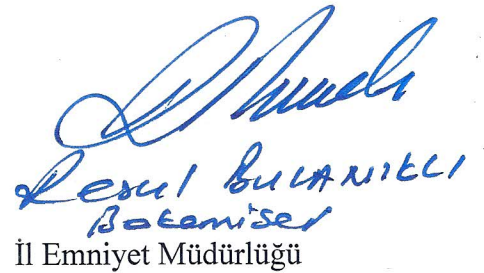 Resul BULANIKLI
Başkomiser
İl Emniyet Müdürlüğü